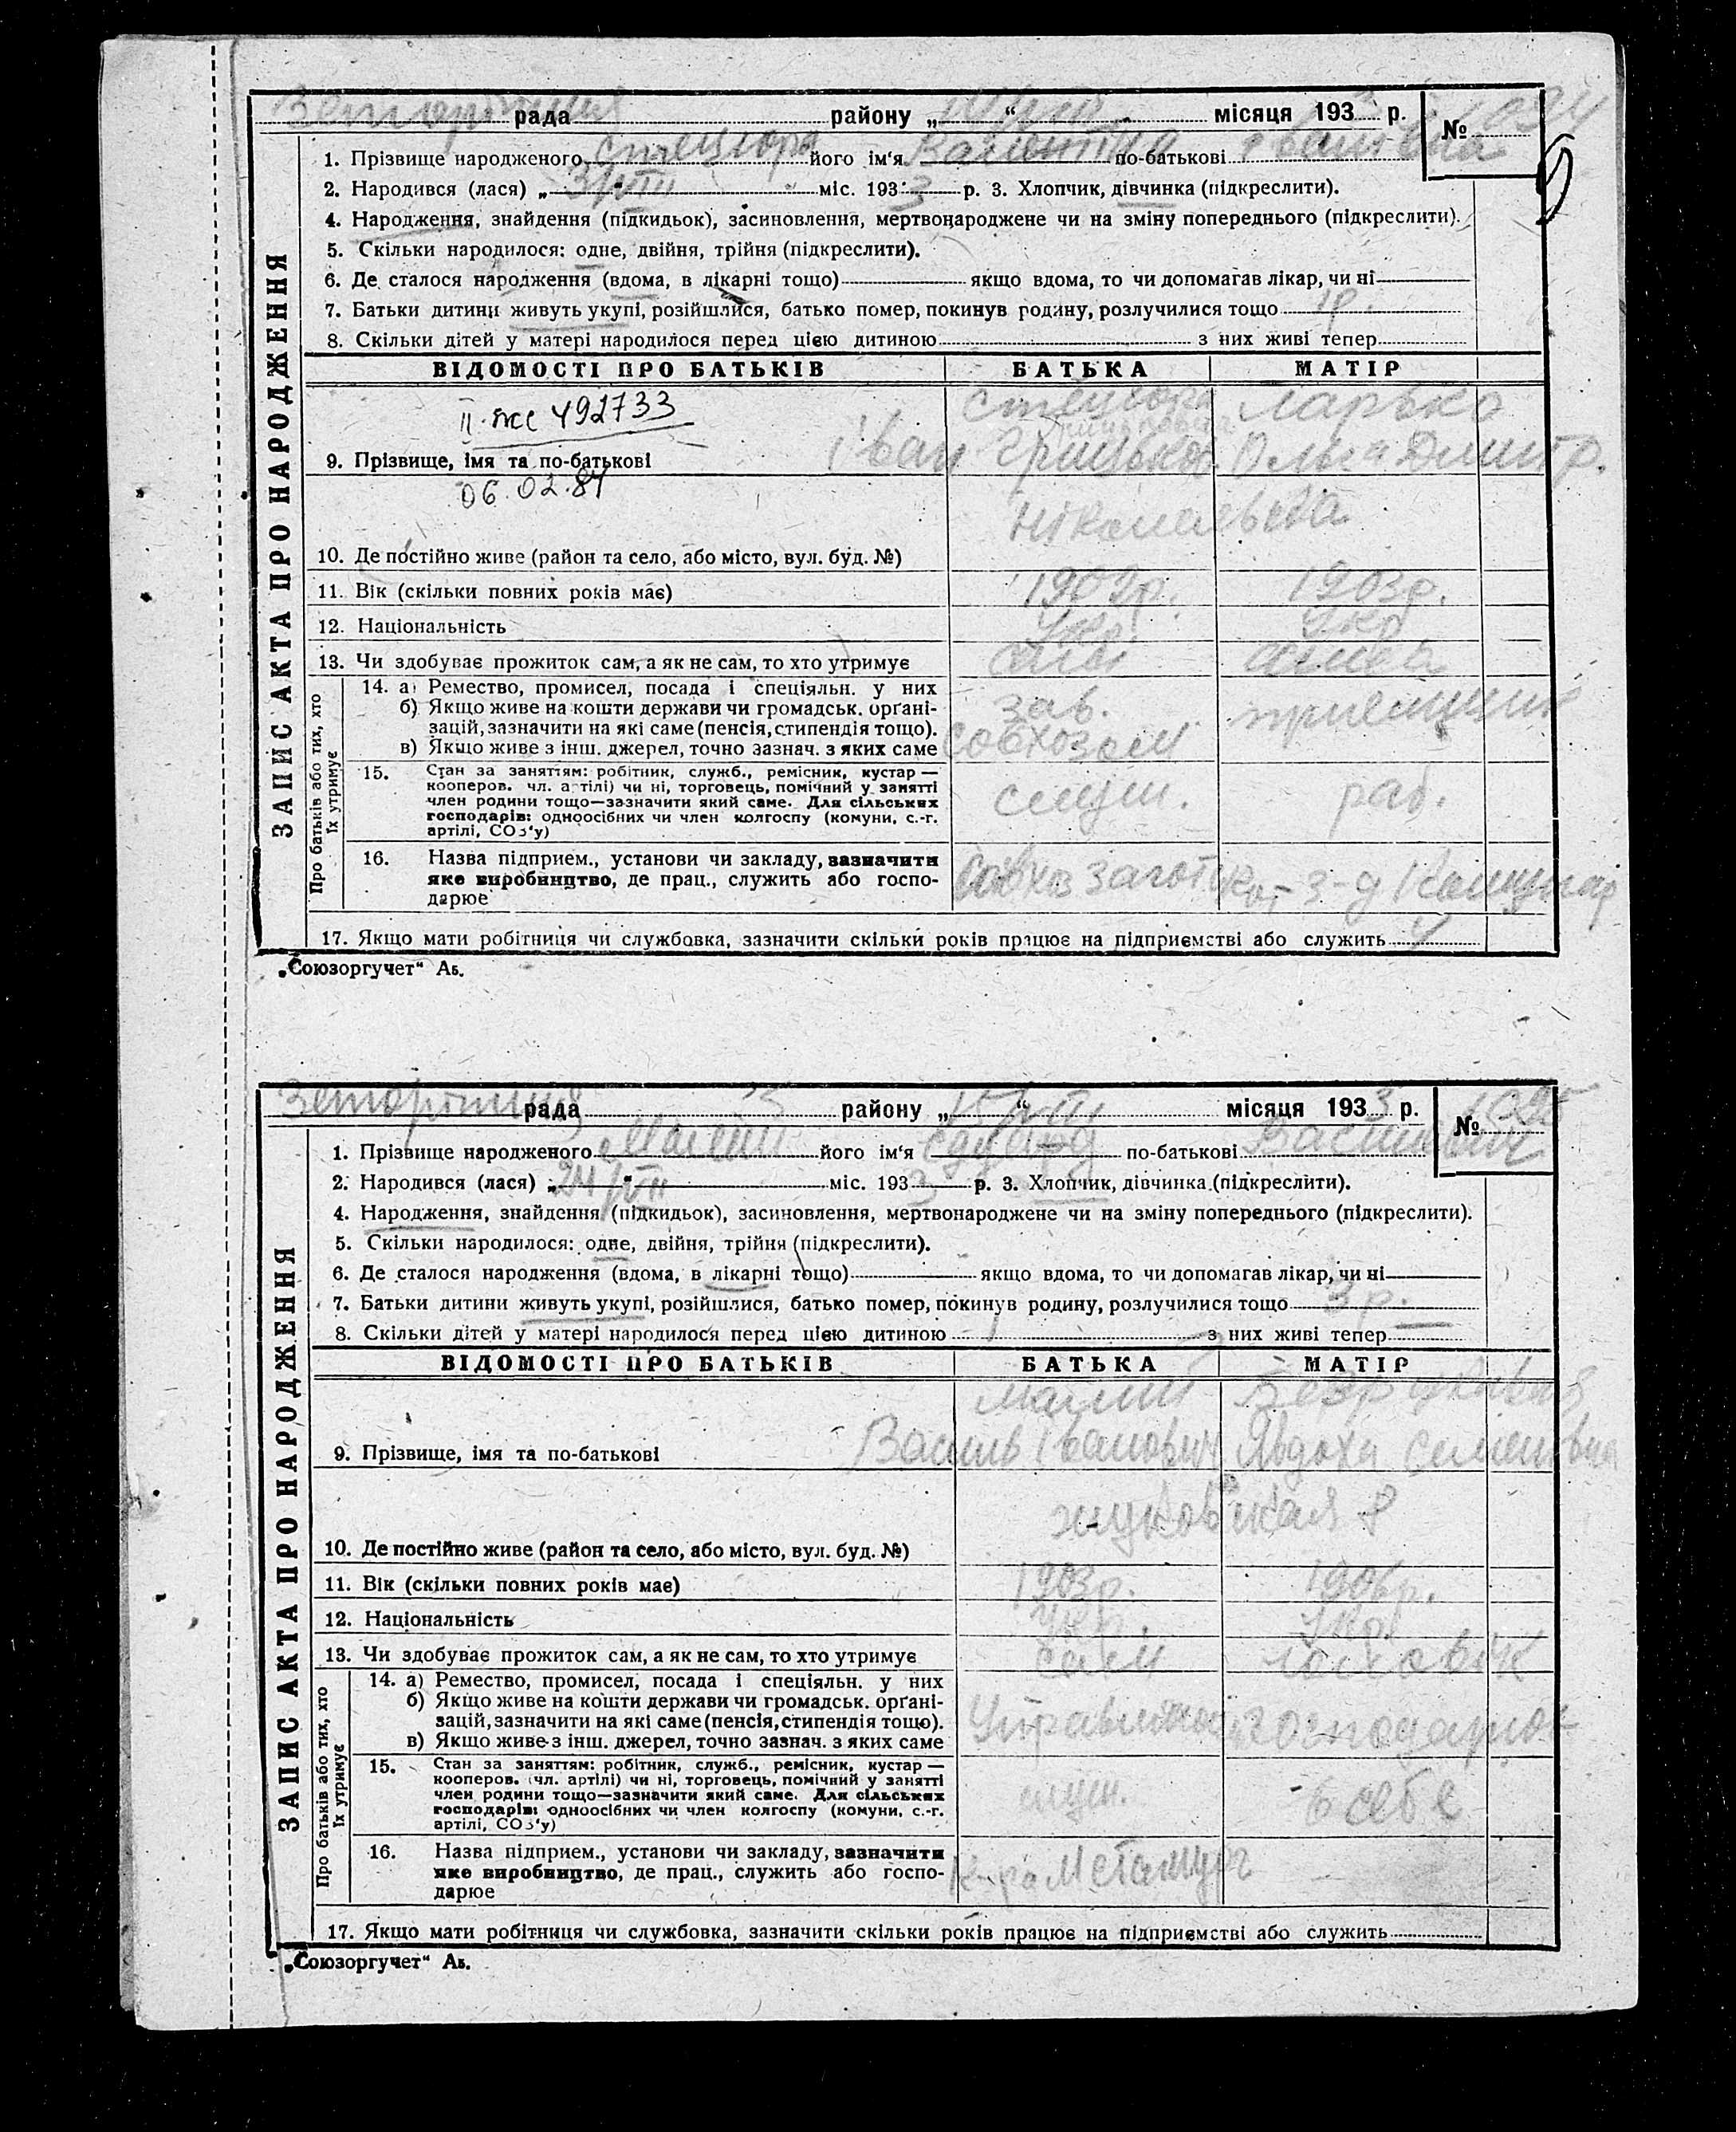 рада району „ “ місяця 1933 р. № 1094
1. Прізвище народженого Стецюра його ім'я Валентина по-батькові Іванівна
2. Народився (лася) „31/VII“ міс. 1933 р. 3. Хлопчик, дівчинка (підкреслити).
4. Народження, знайдення (підкидьок), засиновлення, мертвонароджене чи на зміну попереднього (підкреслити).
5. Скільки народилося: одне, двійня, трійня (підкреслити).
6. Де сталося народження (вдома, в лікарні тощо) якщо вдома, то чи допомагав лікар, чи ні
7. Батьки дитини живуть укупі, розійшлися, батько помер, покинув родину, розлучилися тощо 1р.
8. Скільки дітей у матері народилося перед цією дитиною з них живі тепер
ЗАПИС АКТА ПРО НАРОДЖЕННЯ
ВІДОМОСТІ ПРО БАТЬКІВ БАТЬКА МАТІР
ІІ-ЖС 492733 Стецюра Ларько
9. Прізвище, імя та по-батькові Іван Грицьков. Ольга Дмитр.
06.02.87
10. Де постійно живе (район та село, або місто, вул. буд. №)
11. Вік (скільки повних років має) 1902р. 1903р.
12. Національність Укр. Укр
13. Чи здобуває прожиток сам, а як не сам, то хто утримує сам сама
Про батьків або тих, хто їх утримує
14. а) Ремество, промисел, посада і спеціяльн. у них зав.
б) Якщо живе на кошти держави чи громадськ. орґані-
зацій, зазначити на які саме (пенсія, стипендія тощо).
в) Якщо живе з інш. джерел, точно зазнач. з яких саме совхозом
15. Стан за заняттям: робітник, служб., ремісник, кустар —
кооперов. чл. артілі) чи ні, торговець, помічний у занятті
член родини тощо—зазначити який саме. Для сільських служ. раб.
господарів: одноосібних чи член колгоспу (комуни, с.-г.
артілі, СОЗ'у)
16. Назва підприєм., установи чи закладу, зазначити
яке виробництво, де прац., служить або госпо- з-д Комунар
дарює
17. Якщо мати робітниця чи службовка, зазначити скільки років працює на підприємстві або служить 4
„Союзоргучет“ Ав.
рада району „ “ місяця 1933 р. № 1095
1. Прізвище народженого Малий його ім'я Едуард по-батькові Васильович
2. Народився (лася) „24/VII“ міс. 1933 р. 3. Хлопчик, дівчинка (підкреслити).
4. Народження, знайдення (підкидьок), засиновлення, мертвонароджене чи на зміну попереднього (підкреслити).
5. Скільки народилося: одне, двійня, трійня (підкреслити).
6. Де сталося народження (вдома, в лікарні тощо) якщо вдома, то чи допомагав лікар, чи ні
7. Батьки дитини живуть укупі, розійшлися, батько помер, покинув родину, розлучилися тощо 3р.
8. Скільки дітей у матері народилося перед цією дитиною 1 з них живі тепер
ЗАПИС АКТА ПРО НАРОДЖЕННЯ
ВІДОМОСТІ ПРО БАТЬКІВ БАТЬКА МАТІР
Малий
9. Прізвище, імя та по-батькові Василь Іванович Явдоха Семеновна
Жуковская 8
10. Де постійно живе (район та село, або місто, вул. буд. №)
11. Вік (скільки повних років має) 1903р. 1906р.
12. Національність Укр. Укр
13. Чи здобуває прожиток сам, а як не сам, то хто утримує сам чоловік
Про батьків або тих, хто їх утримує
14. а) Ремество, промисел, посада і спеціяльн. у них
б) Якщо живе на кошти держави чи громадськ. орґані-
зацій, зазначити на які саме (пенсія, стипендія тощо).
в) Якщо живе з інш. джерел, точно зазнач. з яких саме
15. Стан за заняттям: робітник, служб., ремісник, кустар —
кооперов. (чл. артілі) чи ні, торговець, помічний у занятті
член родини тощо—зазначити який саме. Для сільських служ. в себе
господарів: одноосібних чи член колгоспу (комуни, с.-г.
артілі, СОЗ'у)
16. Назва підприєм., установи чи закладу, зазначити
яке виробництво, де прац., служить або госпо- Металург
дарює
17. Якщо мати робітниця чи службовка, зазначити скільки років працює на підприємстві або служить
„Союзоргучет“ Ав.